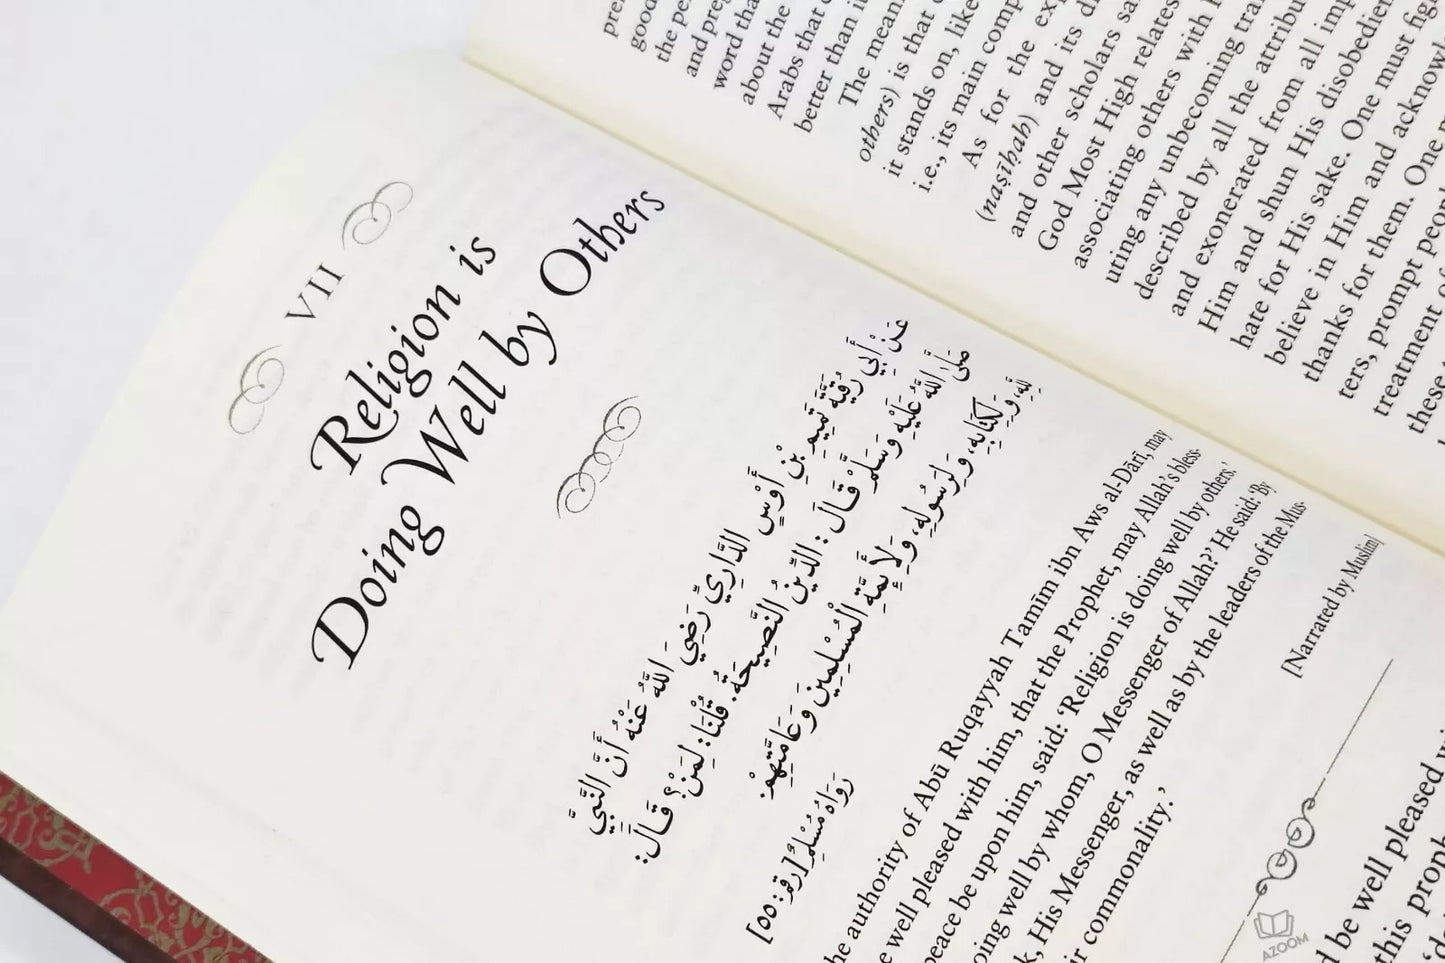 VII
Religion is
Doing Well by Others
عَنْ أَبِي رُقَيَّةَ تَمِيمِ بْنِ أَوْسٍ الدَّارِيِّ رَضِيَ اللَّهُ عَنْهُ أَنَّ النَّبِيَّ
صَلَّى اللَّهُ عَلَيْهِ وَسَلَّمَ قَالَ: الدِّينُ النَّصِيحَةُ. قُلْنَا: لِمَنْ؟ قَالَ:
لِلَّهِ، وَلِكِتَابِهِ، وَلِرَسُولِهِ، وَلِأَئِمَّةِ الْمُسْلِمِينَ وَعَامَّتِهِمْ.
رَوَاهُ مُسْلِمٌ [رقم: ٥٥]
the authority of Abū Ruqayyah Tamīm ibn Aws al-Dārī, may
well pleased with him, that the Prophet, may Allah's bless-
peace be upon him, said: 'Religion is doing well by others.'
well by whom, O Messenger of Allah?' He said: 'By
His Messenger, as well as by the leaders of the Mus-
commonality.'
[Narrated by Muslim]
be well pleased
this
good
and
word
about the
Arabs that
better than
The
others) is that
it stands on, like
i.e., its main
As for the
(naṣīḥah) and its
and other scholars
God Most High relates
associating others with
uting any unbecoming
described by all the
and exonerated from all
Him and shun His
hate for His sake. One must
believe in Him and
thanks for them. One
ters, prompt
treatment of
these
AZOOM